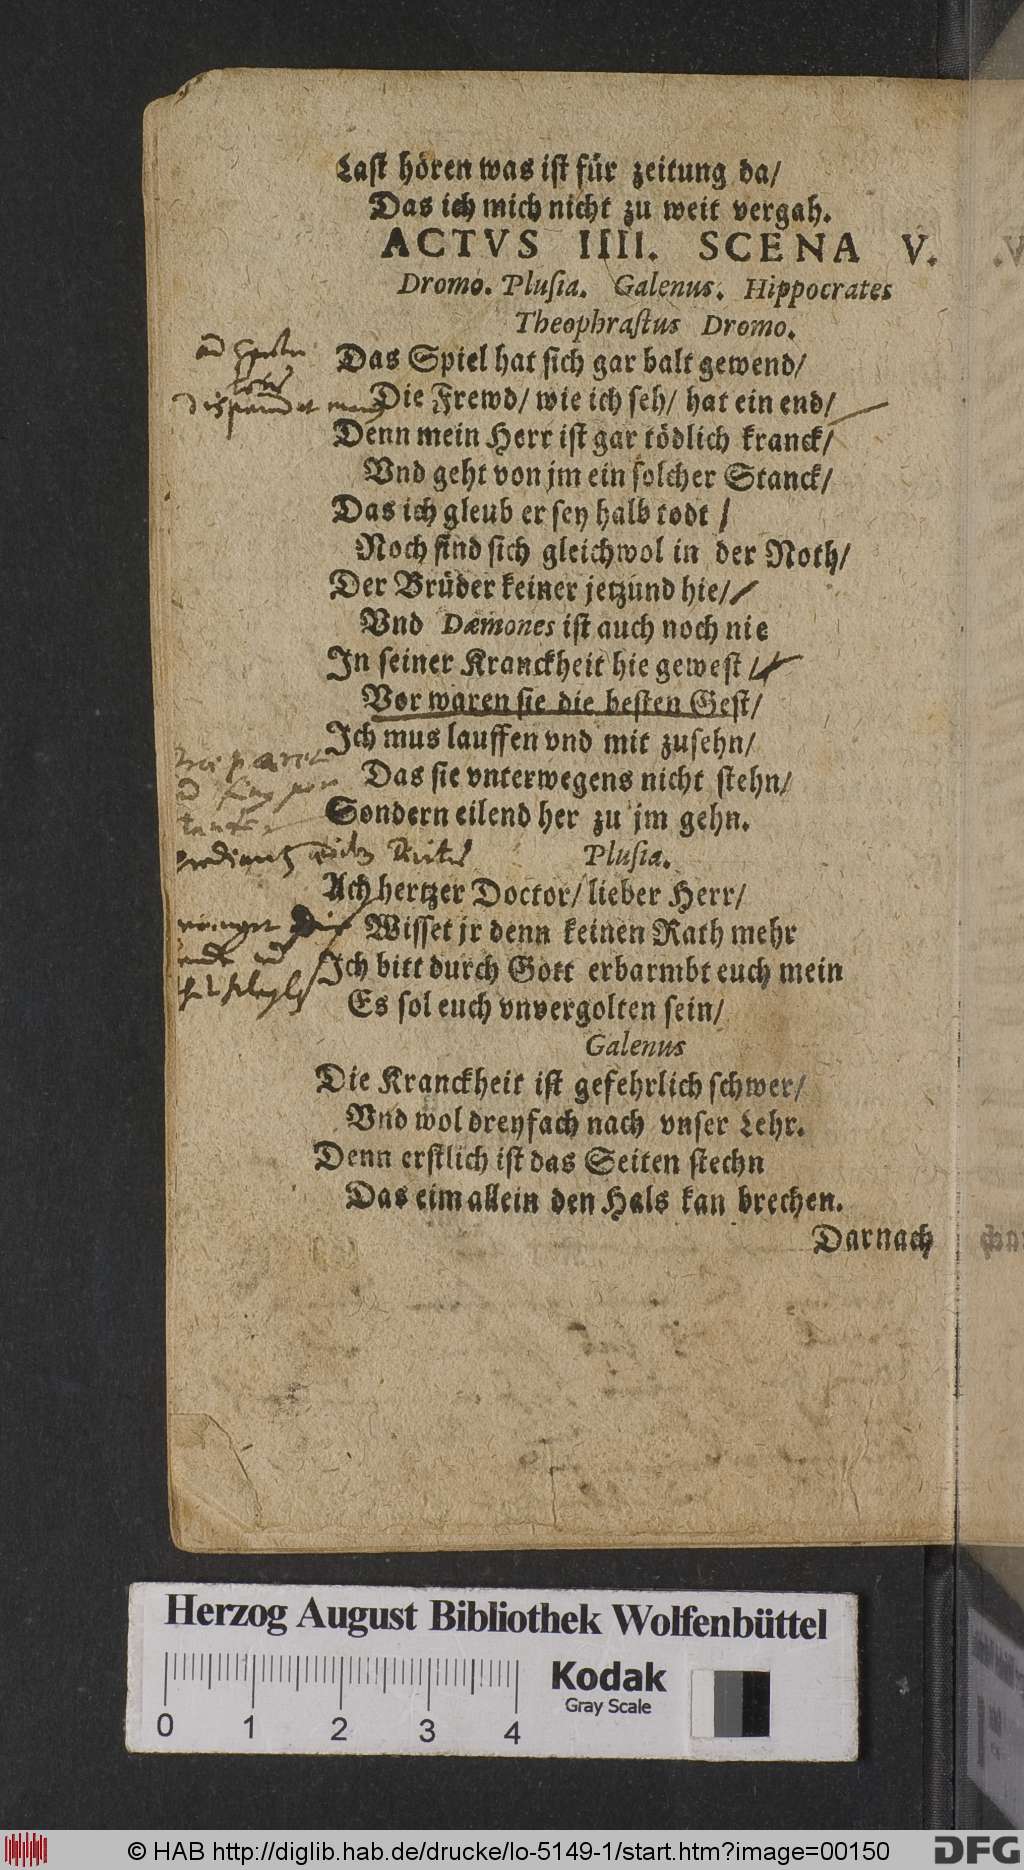 Last hören was ist für zeitung da/
Das ich mich nicht zu weit vergah.
ACTVS IIII. SCENA V.
Dromo. Plusia. Galenus. Hippocrates
Theophrastus Dromo.
Das Spiel hat sich gar balt gewend/
Die Frewd/ wie ich seh/ hat ein end/
Denn mein Herr ist gar tödlich kranck/
Vnd geht von jm ein solcher Stanck/
Das ich gleub er sey halb todt /
Noch find sich gleichwol in der Noth/
Der Brüder keiner jetzund hie/
Vnd Dæmones ist auch noch nie
In seiner Kranckheit hie gewest /
Vor waren sie die besten Gest/
Ich mus lauffen vnd mit zusehn/
Das sie vnterwegens nicht stehn/
Sondern eilend her zu jm gehn.
Plusia.
Ach hertzer Doctor/ lieber Herr/
Wisset jr denn keinen Rath mehr
Ich bitt durch Gott erbarmbt euch mein
Es sol euch vnvergolten sein/
Galenus
Die Kranckheit ist gefehrlich schwer/
Vnd wol dreyfach nach vnser Lehr.
Denn erstlich ist das Seiten stechn
Das eim allein den Hals kan brechen.
Darnach
Herzog August Bibliothek Wolfenbüttel
Kodak
Gray Scale
0 1 2 3 4
© HAB http://diglib.hab.de/drucke/lo-5149-1/start.htm?image=00150
DFG